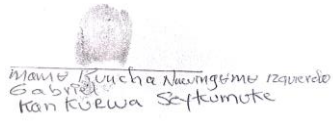 mamo Kuncha Navingumu Izquierdo
Gabriel
Kankurwa Seykumuke